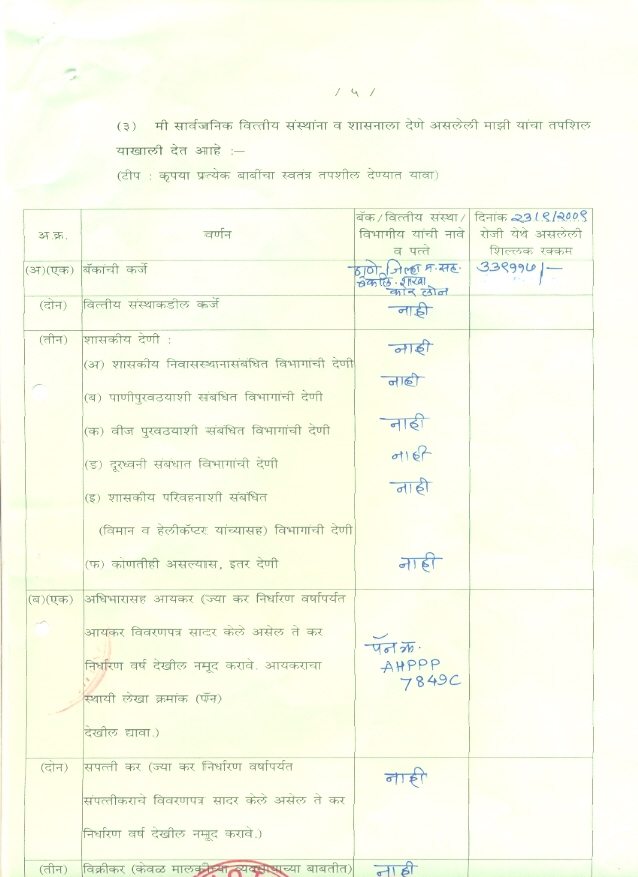 / ५ /
(३) मी सार्वजनिक वित्तीय संस्थांना व शासनाला देणे असलेली माझी यांचा तपशिल
याखाली देत आहे :–
(टीप : कृपया प्रत्येक बाबींचा स्वतंत्र तपशील देण्यात यावा)
अ.क्र. वर्णन बँक/वित्तीय संस्था/ विभागीय यांची नावे व पत्ते दिनांक 23/९/2००९ रोजी येथे असलेली शिल्लक रक्कम
(अ)(एक) बँकांची कर्जे ठाणे जिल्हा म.सह. बँकलि. शाखा कार लोन 33९११७/–
(दोन) वित्तीय संस्थाकडील कर्जे नाही
(तीन) शासकीय देणी : नाही
(अ) शासकीय निवासस्थानासंबंधित विभागांची देणी
नाही
(ब) पाणीपुरवठयाशी संबंधित विभागांची देणी
(क) वीज पुरवठयाशी संबंधित विभागांची देणी नाही
(ड) दूरध्वनी संबधात विभागांची देणी नाही
(इ) शासकीय परिवहनाशी संबंधित नाही
(विमान व हेलीकॅप्टर यांच्यासह) विभागांची देणी
(फ) कोणतीही असल्यास, इतर देणी नाही
(ब)(एक) अधिभारासह आयकर (ज्या कर निर्धारण वर्षापर्यंत
आयकर विवरणपत्र सादर केले असेल ते कर पॅन क्र.
निर्धारण वर्ष देखील नमूद करावे. आयकराचा AHPPP
स्थायी लेखा क्रमांक (पॅन) 7849C
देखील द्यावा.)
(दोन) संपत्ती कर (ज्या कर निर्धारण वर्षापर्यंत नाही
संपत्तीकराचे विवरणपत्र सादर केले असेल ते कर
निर्धारण वर्ष देखील नमूद करावे.)
(तीन) विक्रीकर (केवळ मालकीच्या व्यवसायाच्या बाबतीत) नाही